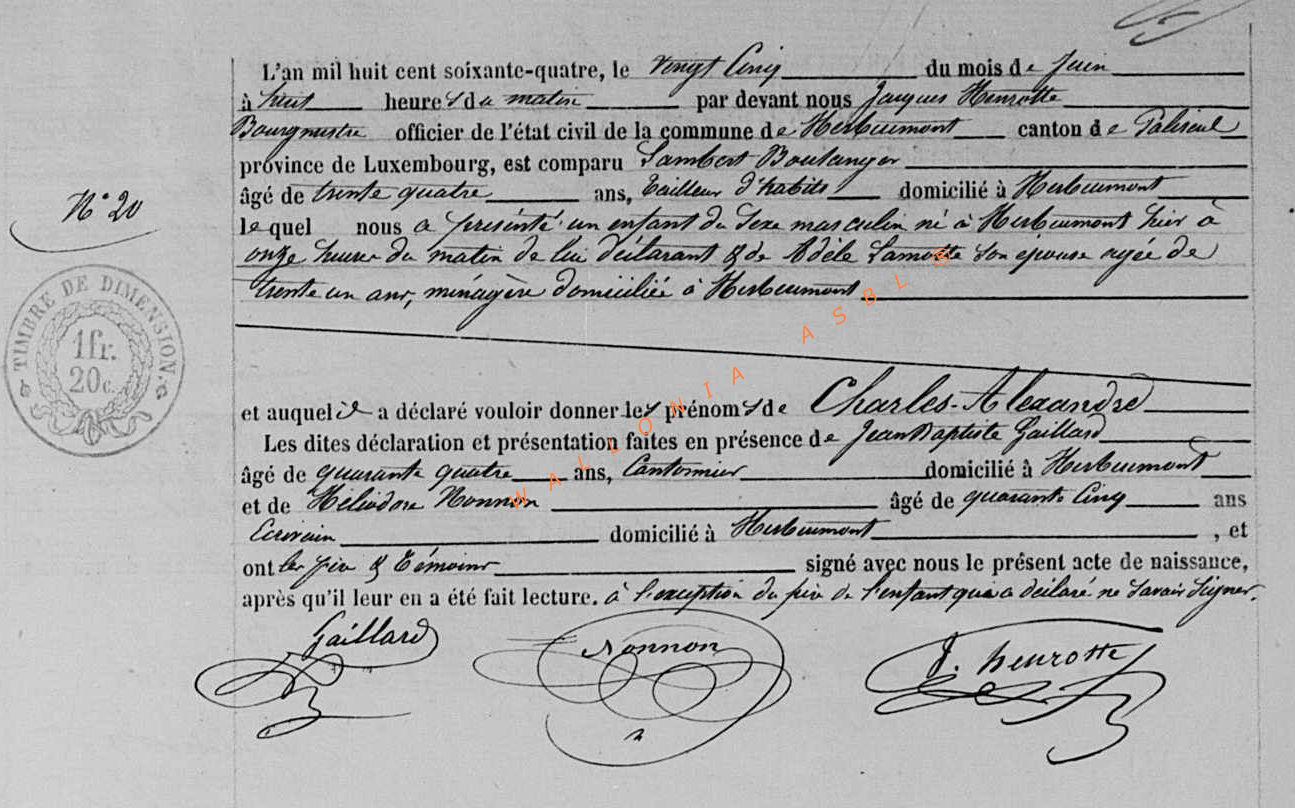 L'an mil huit cent soixante-quatre, le vingt Cinq du mois de Juin
à huit heures du matin par devant nous Jacques Henrotte
Bourgmestre officier de l'état civil de la commune de Herbeumont canton de Paliseul
province de Luxembourg, est comparu Lambert Boulanger
âgé de trente quatre ans, tailleur d'habits domicilié à Herbeumont
N° 20
le quel nous a présenté un enfant du sexe masculin né à Herbeumont hier à
onze heures du matin de lui déclarant & de Adèle Lamotte son épouse agée de
trente un ans, ménagère domiciliée à Herbeumont
TIMBRE DE DIMENSION
1fr.
20c.
et auquel il a déclaré vouloir donner les prénoms de Charles-Alexandre
Les dites déclaration et présentation faites en présence de Jean Baptiste Gaillard
âgé de quarante quatre ans, Cantonnier domicilié à Herbeumont
et de Héliodore Nonnon âgé de quarante Cinq ans
Ecrivain domicilié à Herbeumont, et
ont les père & témoins signé avec nous le présent acte de naissance,
après qu'il leur en a été fait lecture. à l'exception du père de l'enfant qui a déclaré ne savoir signer.
Gaillard Nonnon J. henrotte
WALLONIA ASBL